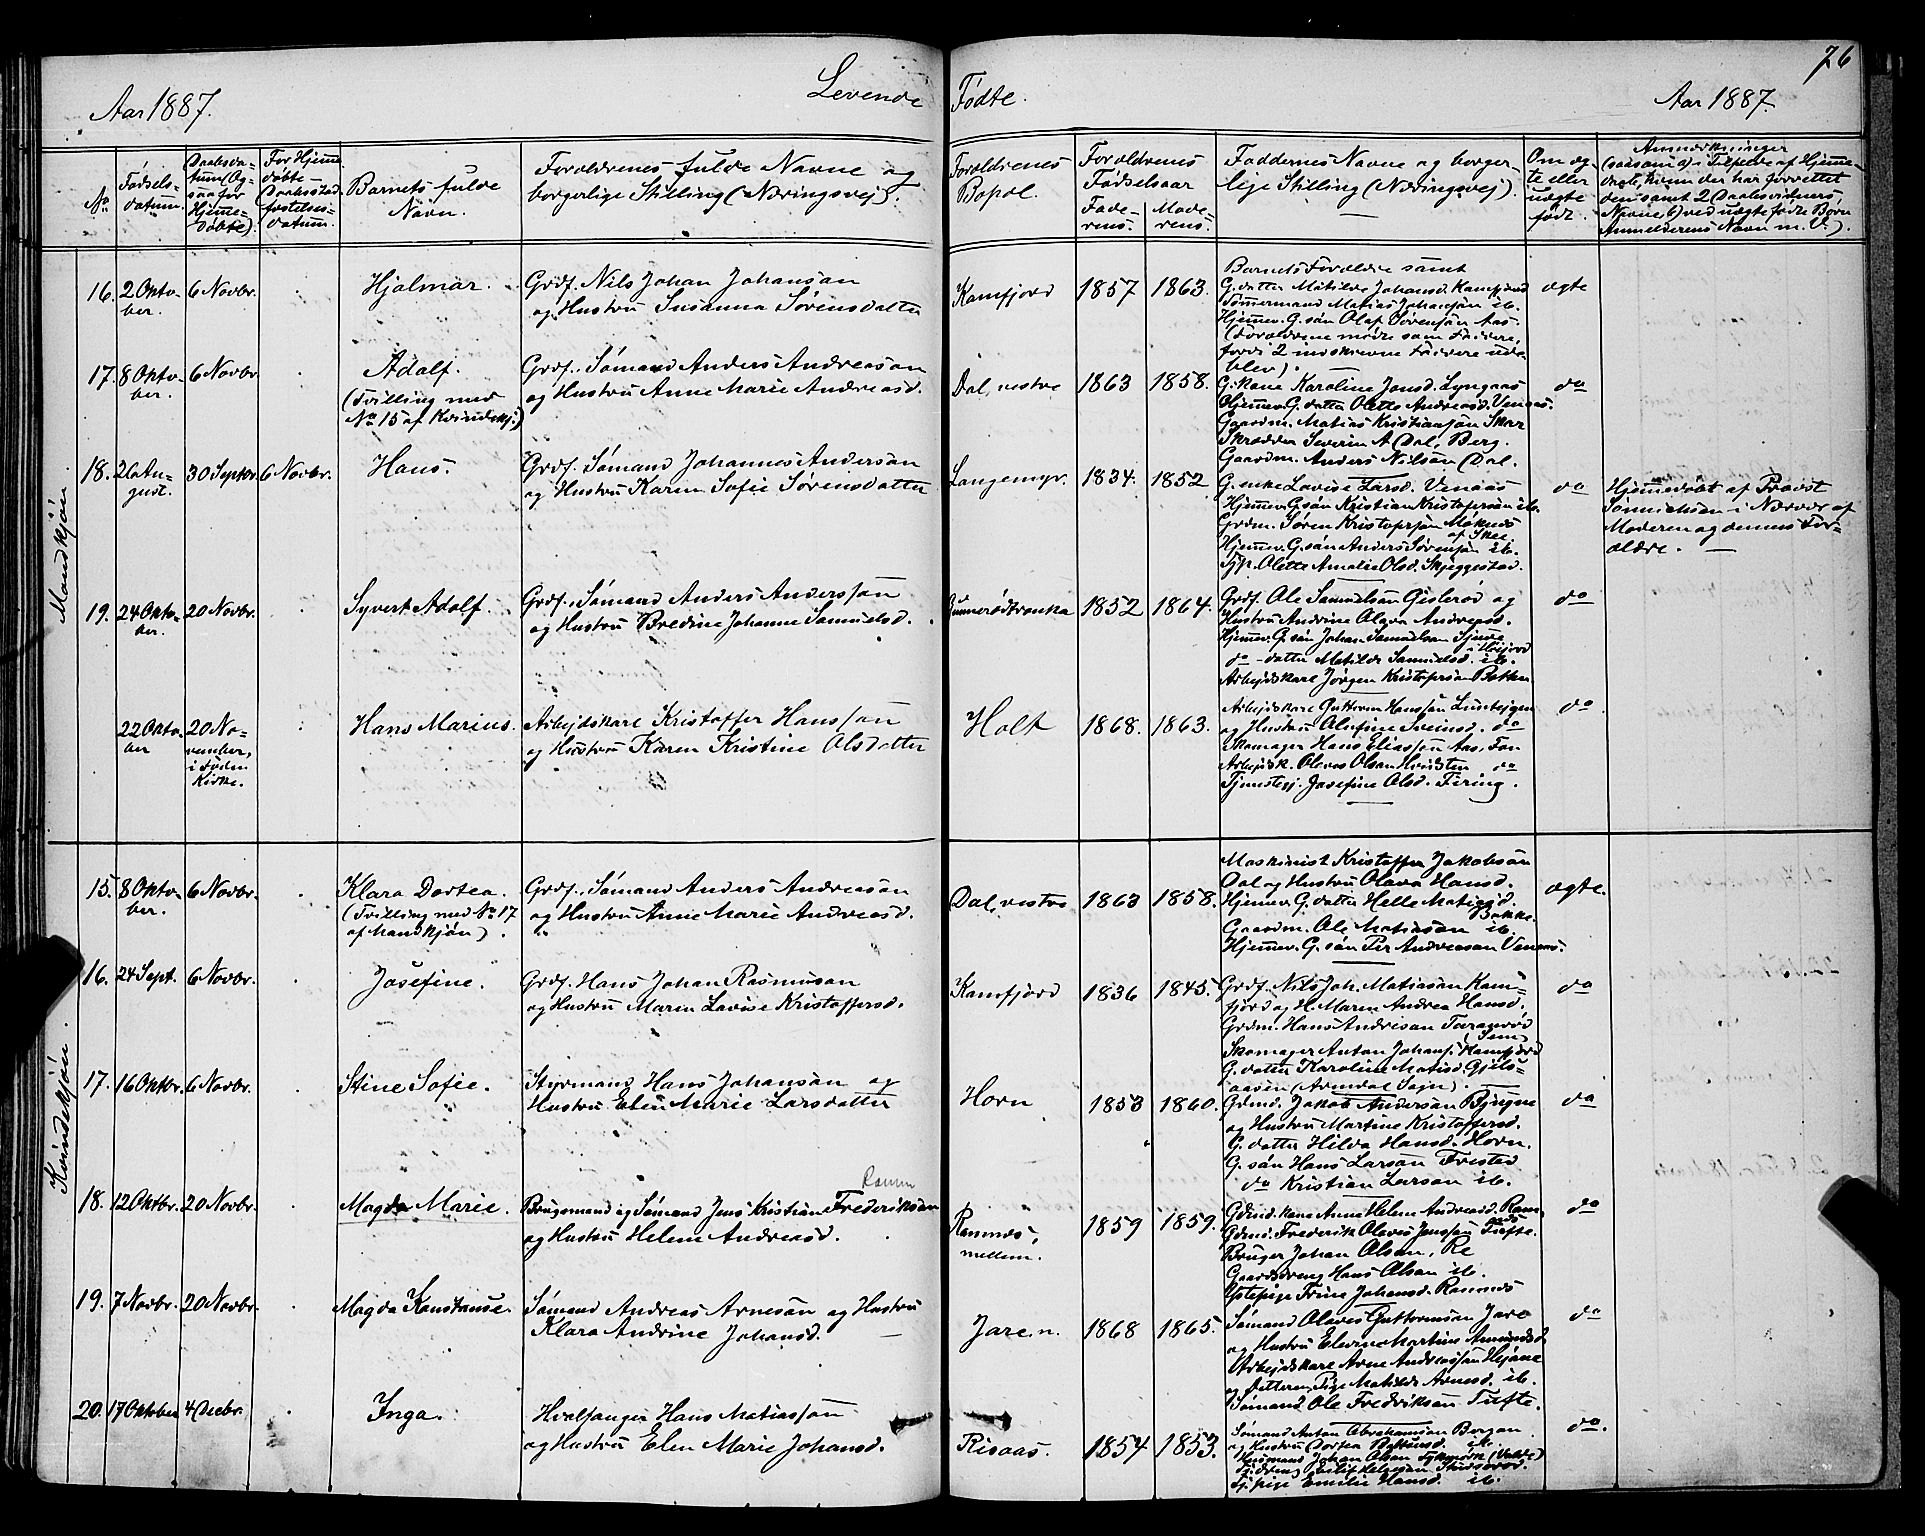 76
Aar 1887.
Levende Fødte.
Aar 1887.
No
Fødsels-
datum.
Daabsda-
tum (Og-
saa for
Hjemme-
døbte).
For Hjemme
døbte
Daabsstad-
fæstelses-
datum.
Barnets fulde
Navn.
Forældrenes fulde Navne og
borgerlige Stilling (Næringsvej).
Forældrenes
Bopæl.
Forældrenes
Fødselsaar
Fade-
rens.
Mode-
rens.
Faddernes Navne og borger-
lige Stilling (Næringsvej).
Om æg-
te eller
uægte
født.
Anmærkninger
(saasom a) i Tilfælde af Hjemme-
daab, hvem der har forrettet
den samt 2 Daabsvidners
Navne b) ved uægte fødte Børn
Anmelderens Navn m. V.).
Mandkjøn
16. 2 Okto-
ber.
6 Novbr.
Hjalmar.
Grdf. Nils Johan Johansøn
og Hustru Susanna Sørensdatter
Kamfjord
1857 1863.
Barnets Forældre samt
G. datter Matilde Johansd. Kamfjord
Tømmermand Matias Johansøn ib.
Hjemmev. G. søn Olaf Sørensøn Aas.
(Forældrene mødte som Faddere,
fordi 2 indskrevne Faddere ude-
blev).
ægte
17. 8 Okto-
ber.
6 Novbr.
Adolf.
(Tvilling med
No 15 af Kvindekj.)
Grdf. Sømand Anders Andreasøn
og Hustru Anne Marie Andreasd.
Dal, vestre
1863 1858.
G. kone Karoline Jonsd. Lyngaas
Hjemmev. G. datter Olette Andreasd. Venaas.
Gaardm. Matias Kristiansøn Skar
Skrædder Severin A Dal, Berg.
Gaardm. Anders Nilsøn Dal.
do
18. 26 Au-
gust.
30 Septbr. 6 Novbr.
Hans.
Grdf. Sømand Johannes Andersøn
og Hustru Karen Sofie Sørensdatter
Langemyr.
1834. 1852
G. enke Lovise Larsd. Venaas
Hjemmev. G. søn Kristian Kristofersøn ib.
Grdm. Søren Kristofersøn Møknes
af Skee
Hjemmev. G. søn Anders Sørensøn ib.
Tjp. Olette Amalie Olsd. Skjeggestad.
do
Hjemmedøbt af Provst
Sønnichsen i Nærvær af
Moderen og dennes For-
ældre.
19. 24 Okto-
ber.
20 Novbr.
Syvert Adolf.
Grdf., Sømand Anders Anderssøn
og Hustru Bredine Johanne Samuelsd.
1852 1864.
Grdf. Ole Samuelsøn Gislerød og
Hustru Andrine Olava Andreasd.
Hjemmev. G. søn Johan Samuelsøn
i Høijord
do datter Matilde Samuelsd. ib.
Arbejdskarl Jørgen Kristofersøn Bakken
do
22 Okto-
ber
20 No-
vember,
i Foden
Kirke.
Hans Marius.
Arbejdskarl Kristoffer Hanssøn
og Hustru Karen Kristine Olsdatter
Holt
1868. 1863.
Arbejdskarl Guttorm Hanssøn
og Hustru Olufine Sveinsd. do
Skomager Hans Eliassøn Aas, Fon
Arbejdsk. Olaves Olsøn Hvidsten do
Tjenestepj. Josefine Olsd. Firing.
do
Kvindekjøn.
15. 8 Okto-
ber.
6 Novbr.
Klara Dortea.
(Tvilling med No 17
af Mandkjøn).
Grdf., Sømand Anders Andreasøn
og Hustru Anne Marie Andreasd.
Dal, vestre
1863 1858.
Maskinist Kristoffer Jakobsøn
Dal og Hustru Olava Hansd.
Hjemmev. G. datter Helle Matisd.
Bakke.
Gaardm. Ole Matiasøn ib.
Hjemmev. G. søn Per Andreasøn Venaas.
ægte.
16. 24 Sept. 6 Novbr.
Josefine.
Grdf. Hans Johan Rasmussøn
og Hustru Maren Lovise Kristoffersd.
Kamfjord
1836 1845.
Grdf. Nils Joh. Matiasøn Kam-
fjord og H. Maren Andrea Hansd.
Grdm. Hans Andresøn Taranrød
(Sem)
Skomager Anton Johans. Kamfjord
G. datter Karoline Matisd. Gjels-
aasen (Arendal Sogn).
do
17. 16 Oktbr. 6 Novbr.
Stine Sofie.
Styrmand Hans Johansøn og
Hustru Elen Marie Larsdatter
Horn
1853 1860.
Gdmd. Jakob Andersøn Bjugne
og Hustru Martine Kristoffersd.
G. datter Hilda Hansd. Horn.
G. søn Hans Larsøn Frested
do Kristian Larsøn ib.
do
18. 12 Oktbr. 20 Novbr.
Magda Marie.
Ramm
Brugsmand og Sømand Jens Kristian Frederiksøn
og Hustru Helene Andreasd.
Ramnes,
mellem.
1859 1859.
Gdmd. kone Anne Helene Andreasd. Ram-
nes
Gdmd. Frederik Olaves Jenssøn Tufte.
Bruger Johan Olsøn, Re
Gaardsdreng Hans Olsøn ib.
Tjenestepige Trine Johansd. Ramnes
do
19. 7 Novbr. 20 Novbr.
Magda Konstanse.
Sømand Andreas Arnesøn og Hustru
Klara Andrine Johansd.
Jare, n.
1868 1865.
Sømand Olaves Guttormsøn Jare
og Hustru Elevine Martine Amundsd.
Arbejdskarl Arne Andreassøn Hejane
og Datteren, Pige Matilde Arnesd. ib.
Sømand Ole Fredriksøn Tufte.
do
20. 17 Oktober 4 Decbr.
Inga.
Hvalfanger Hans Matiassøn
og Hustru Elen Marie Johansd.
Risaas.
1854 1853.
Sømand Anton Abrahamsøn Bergan
og Hustru Dortea ib.
Husmand Johan Olsøn (Vaale)
Tj. pige Emilie Hansd. ib.
do.